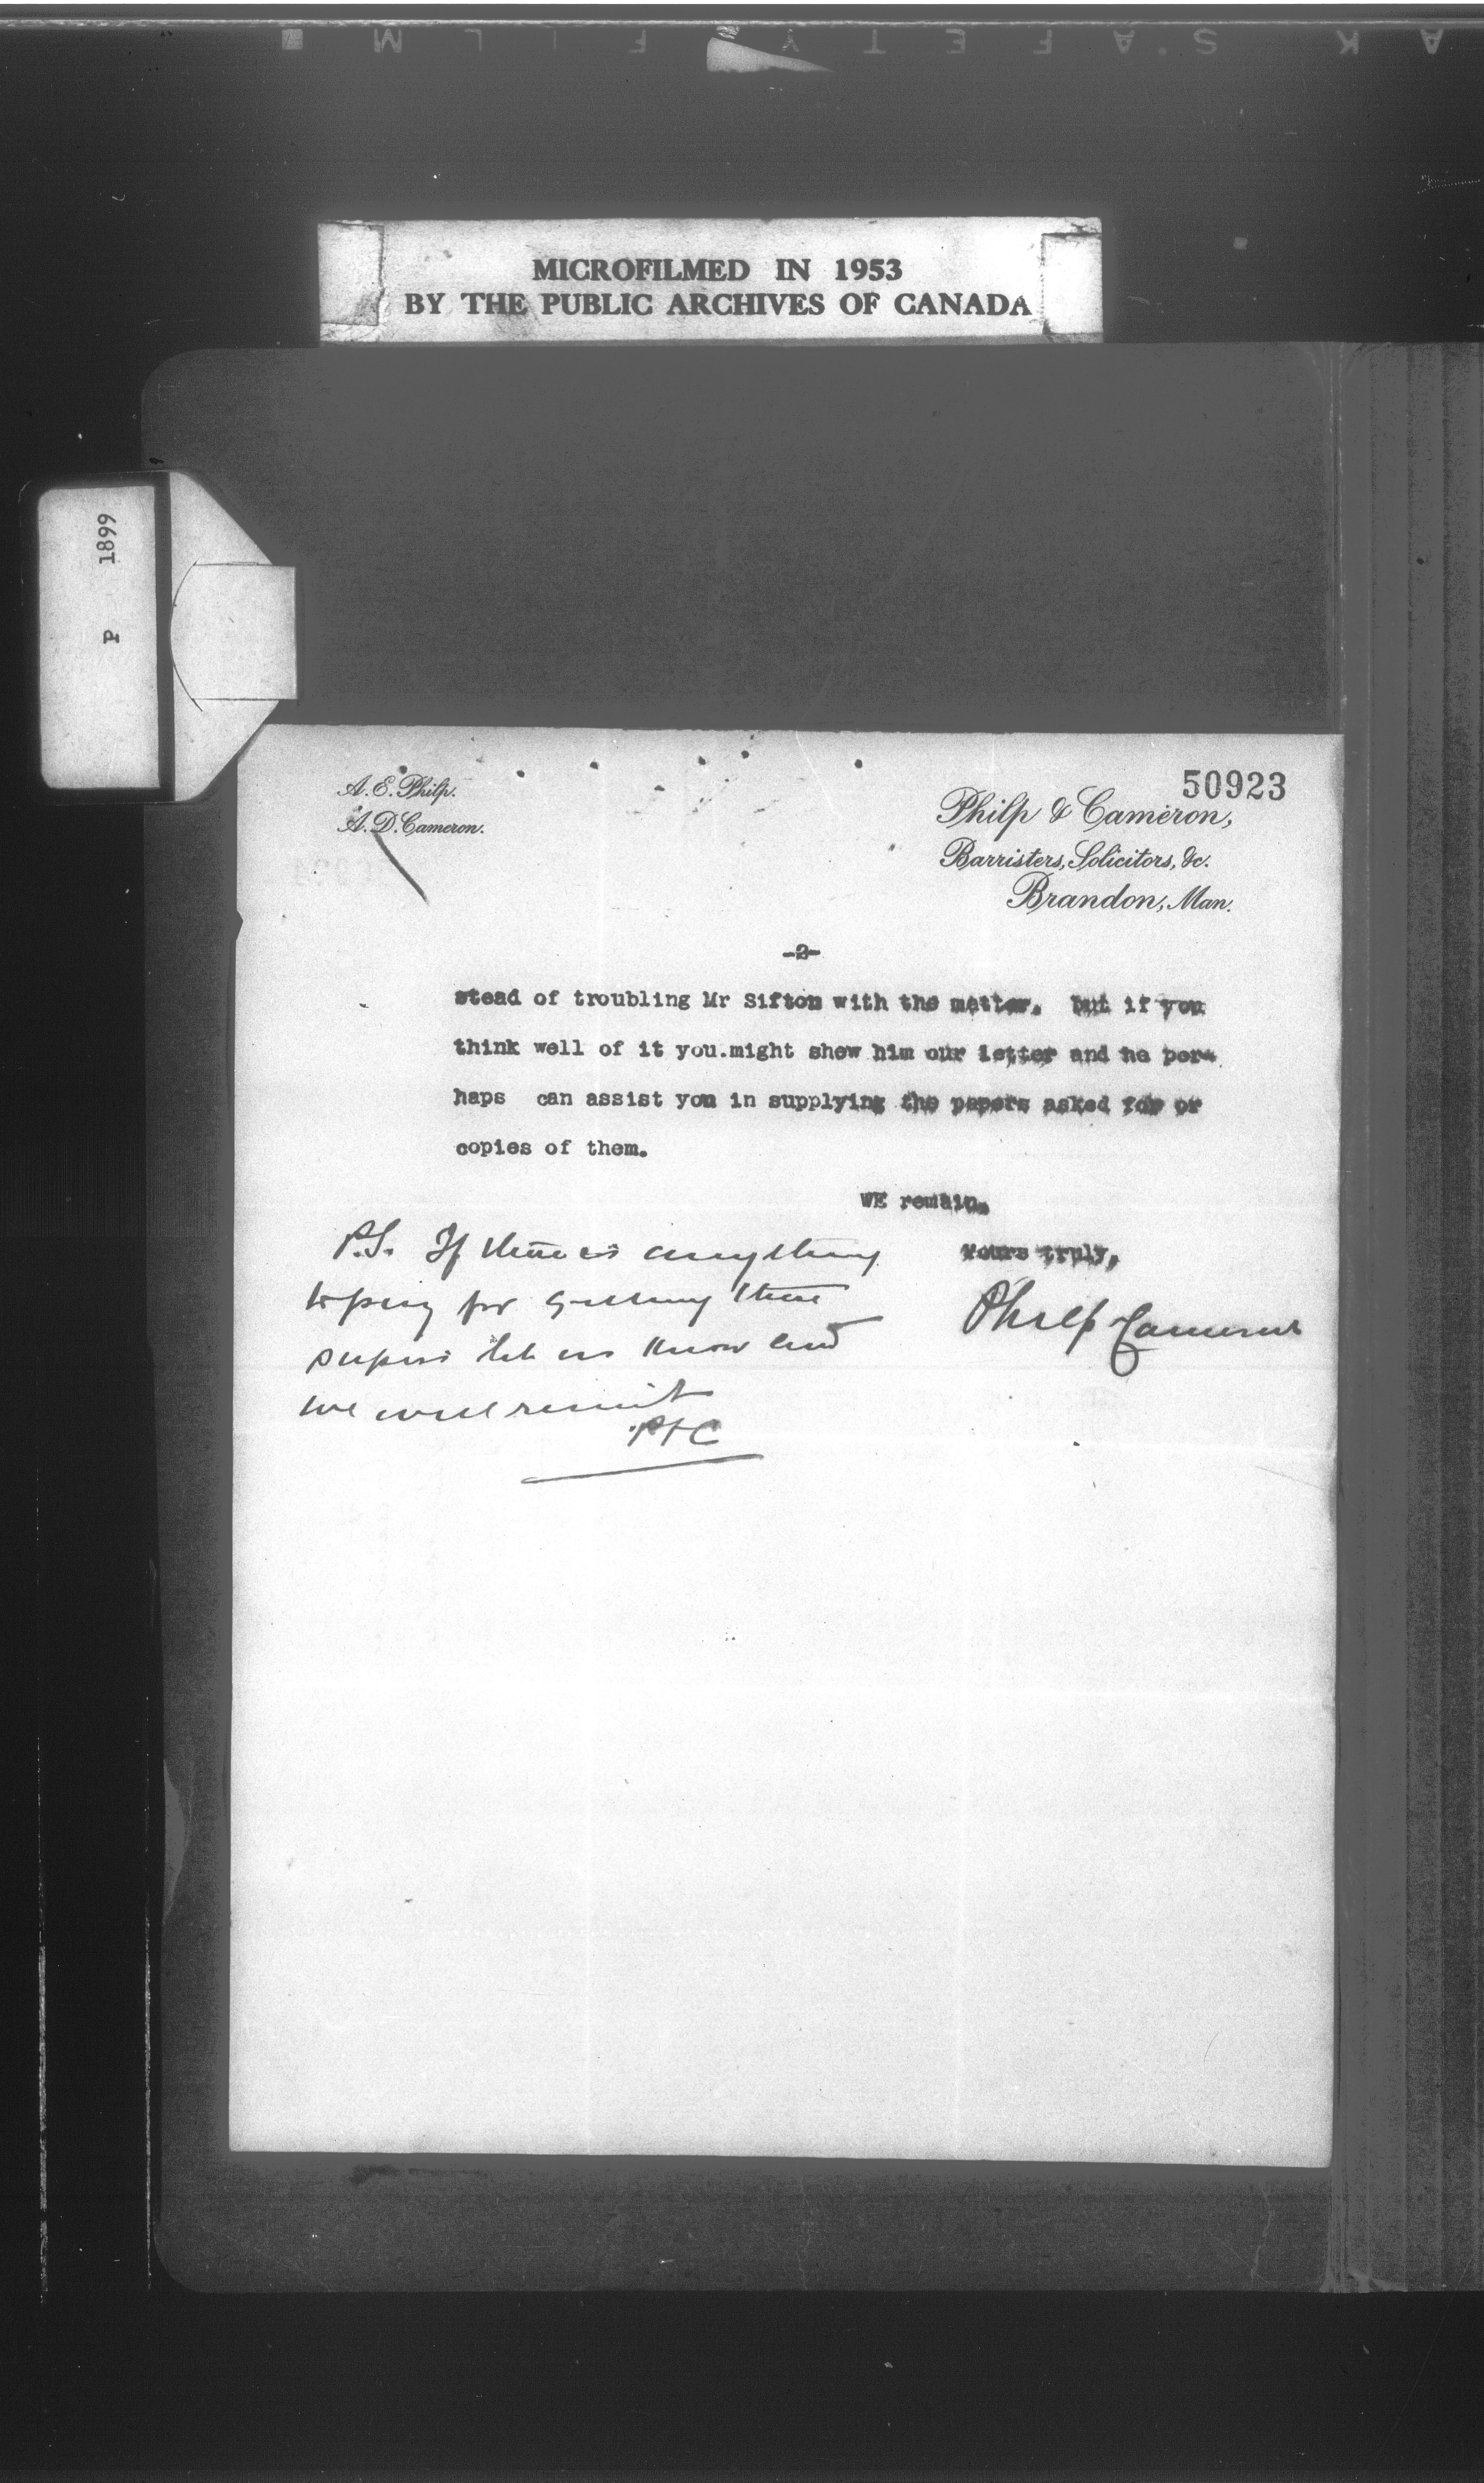 K S.A F E T Y F I L M
MICROFILMED IN 1953
BY THE PUBLIC ARCHIVES OF CANADA
P 1899
50923
A. E. Philp.
A. D. Cameron.
Philp & Cameron,
Barristers, Solicitors, &c.
Brandon, Man.
-2-
stead of troubling Mr Sifton with the matter. but if you
think well of it you.might shew him our letter and he per-
haps can assist you in supplying the papers asked for or
copies of them.
WE remain.
Yours truly,
Philp Cameron
P.S. If there is anything
to pay for getting these
papers let us know and
we will remit
P+C